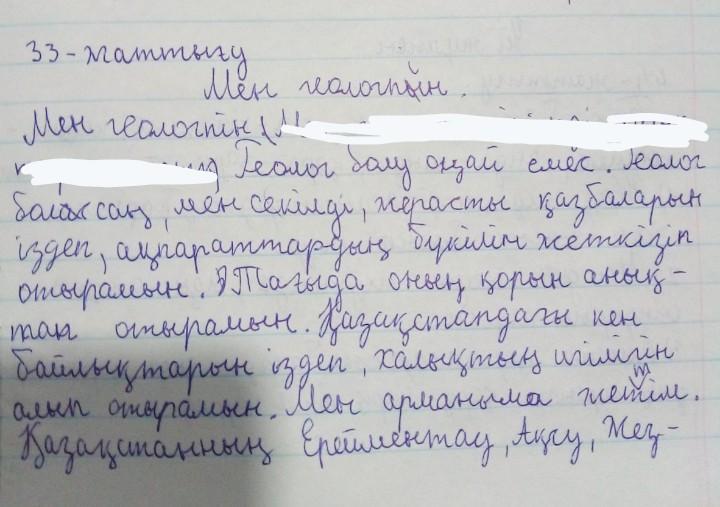 33-жаттығу
Мен геологпын.
Мен геологпін (М
Геолог болу оңай емес. Геолог
боласаң, мен секілді, жерасты қазбаларын
іздеп, ақпараттардың бүкілін жеткізіп
отырамын. Тағыда оның қорын анық-
тап отырамын. Қазақстандағы кен
байлықтарын іздеп, халықтың игілігін
алып отырамын. Мен арманыма жеттім.
Қазақстанның Ерейментау, Ақсу, Жез-